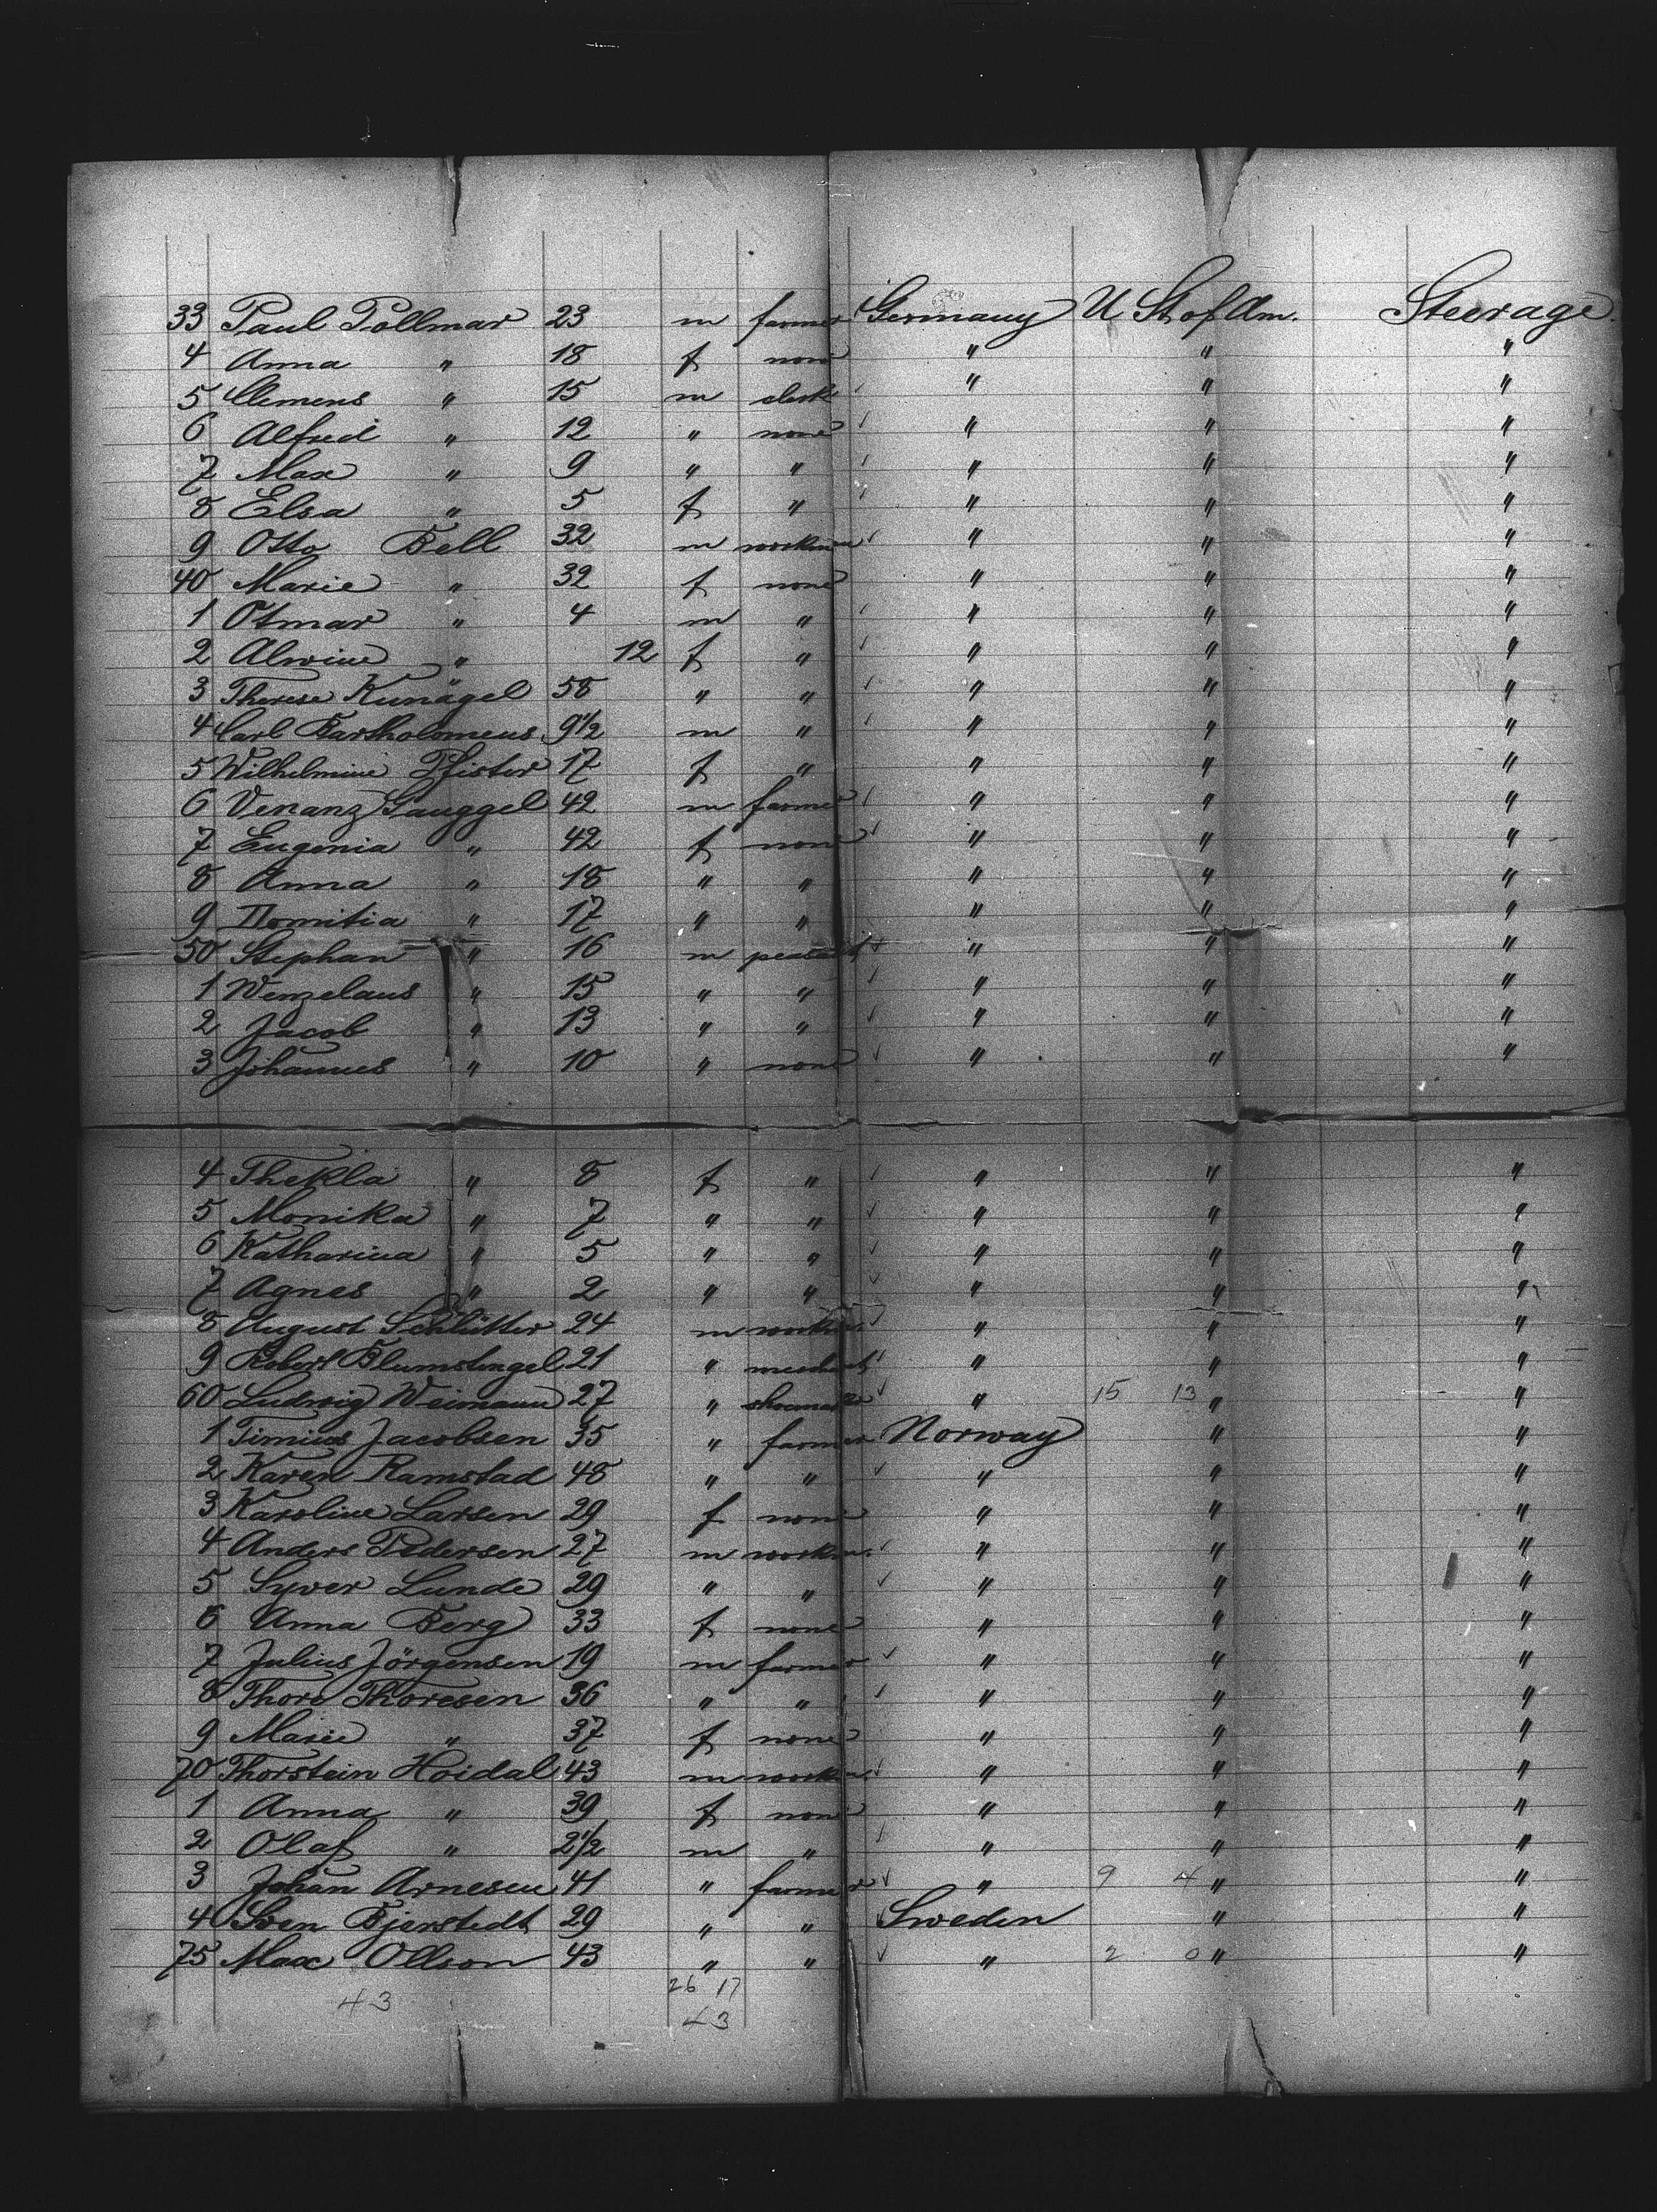 33 Paul Pollmar 23 m farmer Germany U St of Am. Steerage.
4 Anna " 18 f none " " "
5 Clemens " 15 m clerk " " "
6 Alfred " 12 " none " " "
7 Max " 9 " " " " "
8 Elsa " 5 f " " " "
9 Otto Bell 32 m workman " " "
40 Marie " 32 f none " " "
1 Otmar " 4 m " " " "
2 Alwine " 12 f " " " "
3 Therese Kunägel 58 " " " " "
4 Carl Bartholomeus 9 1/2 m " " " "
5 Wilhelmine Pfister 17 f " " " "
6 Venanz Gauggel 42 m farmer " " "
7 Eugenia " 42 f none " " "
8 Anna " 18 " " " " "
9 Domitia " 17 " " " " "
50 Stephan " 16 m peasant " " "
1 Wenzelaus " 15 " " " " "
2 Jacob " 13 " " " " "
3 Johannes " 10 " none " " "
4 Thekla " 8 f " " " "
5 Monika " 7 " " " " "
6 Katharina " 5 " " " " "
7 Agnes " 2 " " " " "
8 August Schlütter 24 m workm. " " "
9 Robert Blumstengel 21 " merchant " " "
60 Ludwig Weimann 27 " shoemaker " 15 13 " "
1 Timius Jacobsen 35 " farmer Norway " "
2 Karen Ramstad 48 " " " " "
3 Karoline Larsen 29 f none " " "
4 Anders Pedersen 27 m workm. " " "
5 Syver Lunde 29 " " " " "
6 Anna Berg 33 f none " " "
7 Julius Jörgensen 19 m farmer " " "
8 Thore Thoresen 36 " " " " "
9 Marie " 37 f none " " "
70 Thorstein Hoidal 43 m workm. " " "
1 Anna " 39 f none " " "
2 Olaf " 2 1/2 m " " " "
3 Johan Arnesen 41 " farmer " 9 4 " "
4 Sven Bjerstedt 29 " " Sweden " "
75 Max Ollson 43 " " " 2 0 " "
26 17
43 43